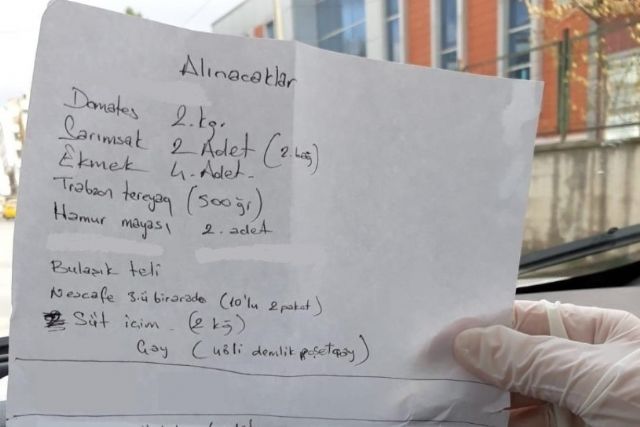 Alınacaklar
Domates 2.kgr.
Sarımsak 2 Adet (2.bağ)
Ekmek 4.Adet.
Trabzon tereyağ (500 ğr)
Hamur mayası 2.adet
Bulaşık teli
Nescafe 3.ü birarada (10'lu 2 paket)
Süt içim. (2 kğ)
Çay (48li demlik poşetçay)